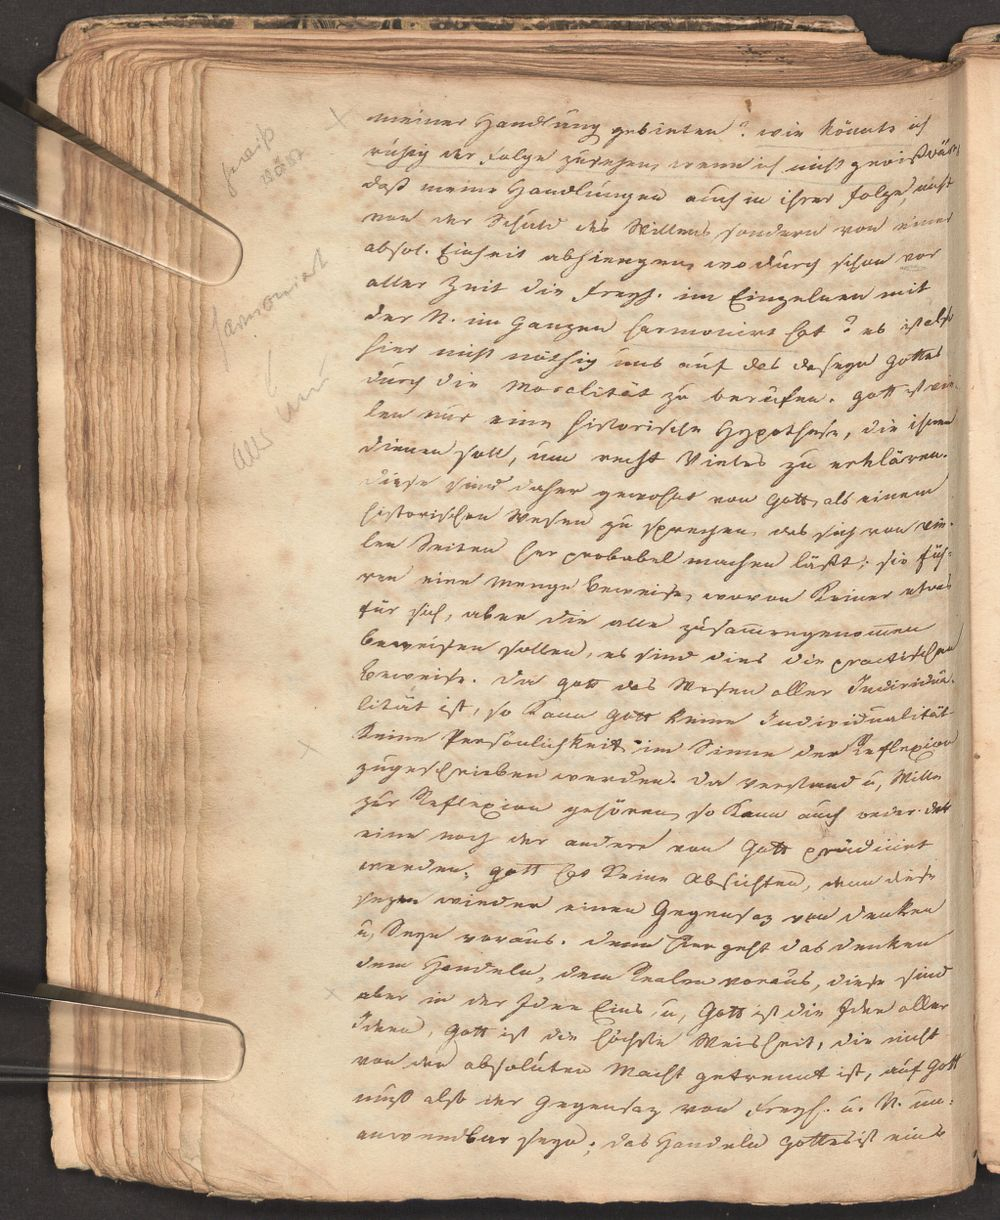 meiner Handlung gebieten? wie könnte ich
ruhig der Folge zusehen, wenn ich nicht gewiß wäre,
daß meine Handlungen auch in ihrer Folge, nicht
von der Schuld des Willens, sondern von einer
absol. Einheit abhiengen, wodurch schon vor
aller Zeit die Freyh. im Einzelnen mit
der N. im Ganzen harmonirt hat? es ist also
hier nicht nöthig uns auf das daseyn Gottes
durch die Moralität zu berufen. Gott ist vie-
len nur eine historische Hypothese, die ihnen
dienen soll, um recht Vieles zu erklären.
diese sind daher gewohnt von Gott, als einem
historischen Wesen zu sprechen, das sich von vie-
len Seiten her probabel machen läßt; sie füh-
ren eine Menge Beweise, wovon keiner etwas
für sich, aber die alle zusammengenommen
beweisen sollen, es sind dies die practischen
Beweise. Da Gott das Wesen aller Individua-
lität ist, so kann Gott keine Individualität
keine Persönlichkeit im Sinne der Reflexion
zugeschrieben werden. Da Verstand u, Wille
zur Reflexion gehören, so kann auch weder der
eine noch der andere von Gott prädicirt
werden; Gott hat keine Absichten, denn diese
sezen wieder einen Gegensaz von denken
u, Seyn voraus. denn hier geht das denken
dem Handeln, dem Realen voraus, diese sind
aber in der Idee Eins, u, Gott ist die Idee aller
Ideen, Gott ist die höchste Weisheit, die nicht
von der absoluten Macht getrennt ist, auf Gott
muß also der Gegensaz von Freyh. u. N. un-
anwendbar seyn; das Handeln Gottes ist eine
harmonirt
alle